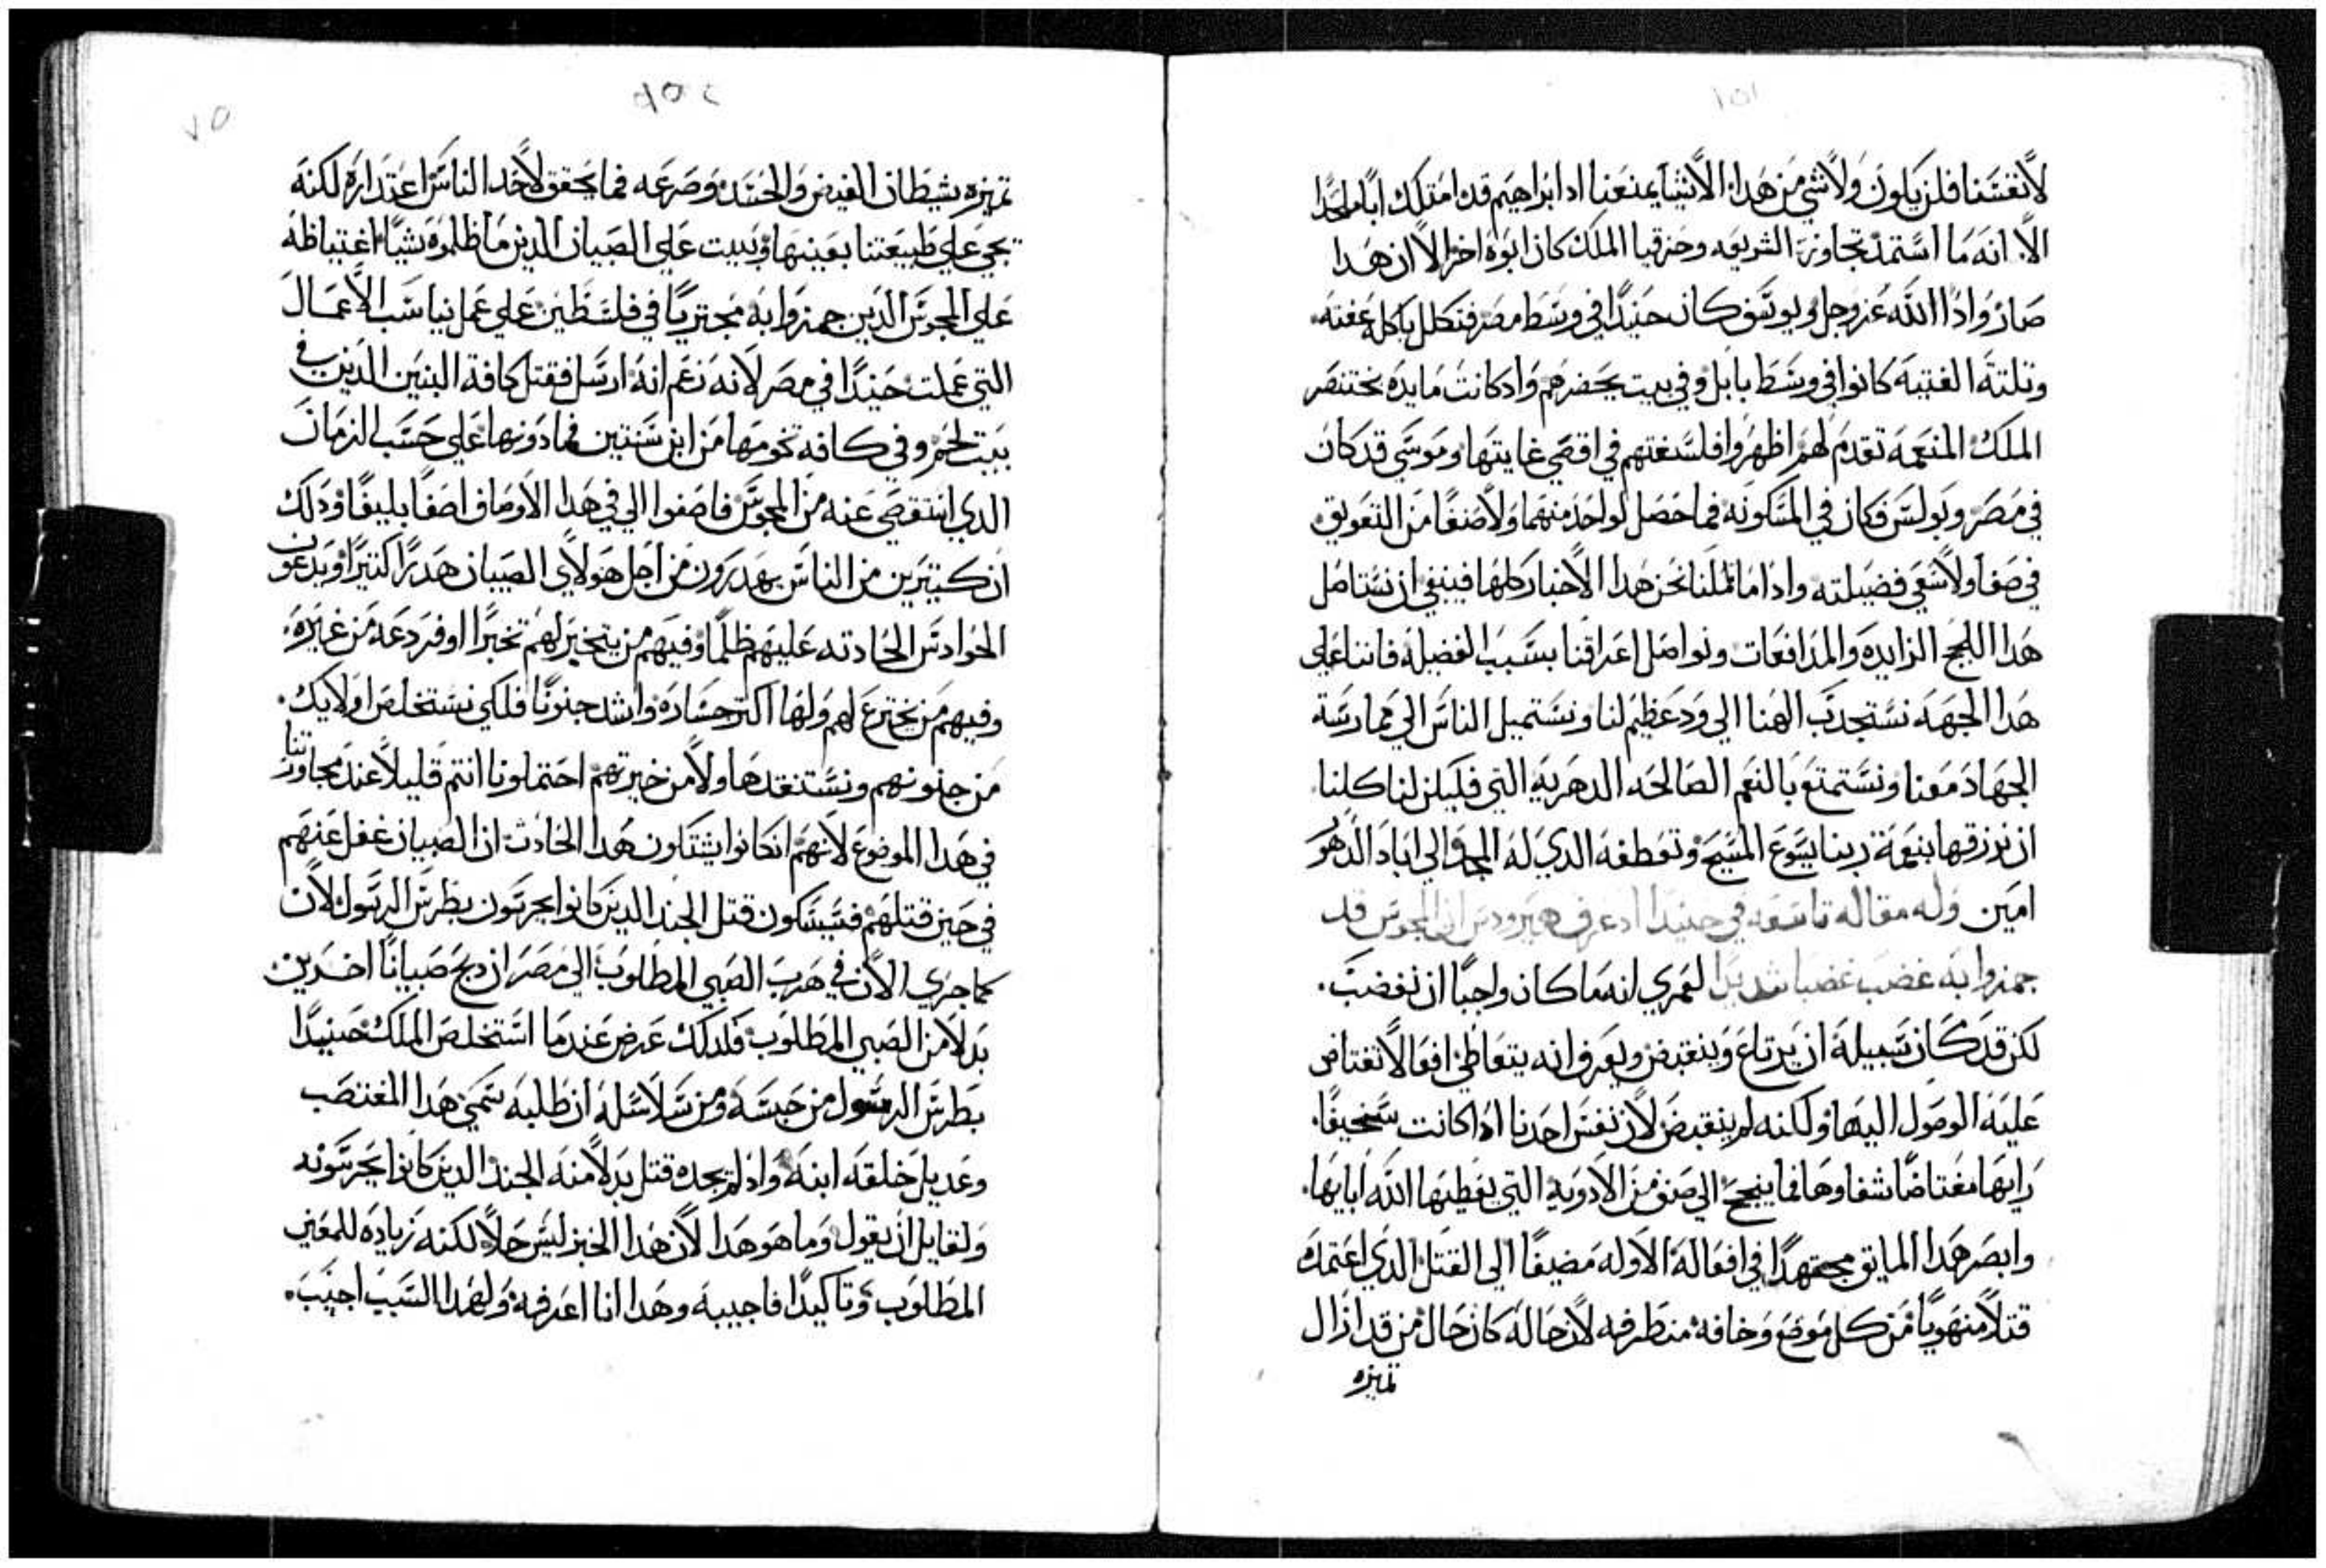 ١٥١
لانفسنا فلن يكون ولا شي من هدا الاشيا يمنعنا اد ابراهيم قد امتلك ابا ملحدا
الا انه ما استمد تجاوز الشريعه وحزقيا الملك كان ابوه اخر الا ان هدا
صار واد الله عز وجل ويوسف كان حنيدا في وسط مصر فتكلل باكله عفته
وتلتة الفتية كانوا في وسط بابل وفي بيت يحضرهم واد كانت مايدة بختنصر
الملك المنعمه تقدم لهم اظهروا فلسفتهم في اقصي غايتها وموسي قد كان
في مصر وبولس فكان في المسكونه فما حصل لواحد منهما ولا صنفا من التعويق
في صفا ولا سعي فضيلته وادا ما تاملنا نحن هدا الاخبار كلها فينبغي ان نستاصل
هدا اللجج الزايده والمدافعات ونواصل اعراقنا بسبب الفضيله فاننا علي
هدا الجهه نستجدب الهنا الي ود عظيم لنا ونستميل الناس الي ممارسة
الجهاد معنا ونستمتع بالنعم الصالحه الدهريه التي فليكن لنا كلنا
ان نرزقها بنعمة ربنا يسوع المسيح وتعطفه الدي له المجد والي اباد الدهور
امين وله مقاله تاسعه في حنيدا اد عرف هيرودس ان المجوس قد
جمزوا به غضب غضبا شديدا لعمري انه ما كان واجبا ان تغضب
لكن قد كان سبيله ان يرتاع وينقبض ويعرف انه يتعاطي افعالا تغتاض
عليه الوصول اليها ولكنه لم ينقبض لان نفس احدنا ادا كانت سخيفا
رايها مغتاضا شفاوها فما ينجح الي صنف من الادويه التي يعطيها الله اياها
وابصر هدا المايق مجتهدا في افعاله الاوله مضيفا الي القتل الدي اعتمده
قتلا منهويا من كل موضع وخافه متطرفه لان حاله كان حال من قد ازال
تميزه
٧٥
تميزه شيطان الغيض والحسد وصرعه فما يحقق لاحد الناس اعتداره لكنه
يجي علي طبيعتنا بعينها ويبيت علي الصبيان الدين ما ظلموه شيا اغتياظه
علي المجوس الدين جمزوا به مجتريا في فلسطين علي عمل يناسب الاعمال
التي عملت حنيدا في مصر لانه زعم انه ارسل فقتل كافة البنين الدين في
بيت لحم وفي كافه تخومها من ابن سنتين فما دونها علي حسب الزمان
الدي استقصي عنه من المجوس فاصفوا الي في هدا الاوصاف اصفا بليغا ودلك
ان كتيرين من الناس يهدرون من اجل هولاي الصبيان هدرا كتيرا ويدعون
الحوادت الحادته عليهم ظلما وفيهم من يتحير لهم تحيرا اوفر دعه من غيره
وفيهم من يخترع لهم ولها اكتر جساره واشد جنونا فلكي نستخلص اولايك
من جنونهم ونستنقدها ولا من خيرتهم احتملونا انتم قليلا عند مجاورتنا
في هدا الموضوع لانهم ان كانوا يشتكون هدا الحادت ان الصبيان غفل عنهم
في حين قتلهم فسيشكون قتل الجند الدين كانوا يحرسون بطرس الرسول لان
كما جري الان في هرب الصبي المطلوب الي مصر ان دبح صبيانا اخرين
بدلا من الصبي المطلوب فلدلك عرض عندما استخلص الملك حنيدا
بطرس الرسول من حبسه ومن سلاسله ان طلبه سمي هدا المغتصب
وعديل خلقه ابنه واد لم يجده قتل بدلا منه الجند الدين كانوا يحرسونه
ولقايل ان يقول وما هو هدا لان هدا الخبر ليس حلا لكنه زياده للمعني
المطلوب وتاكيدا فاجيبه وهدا انا اعرفه ولهدا السبب اجيب